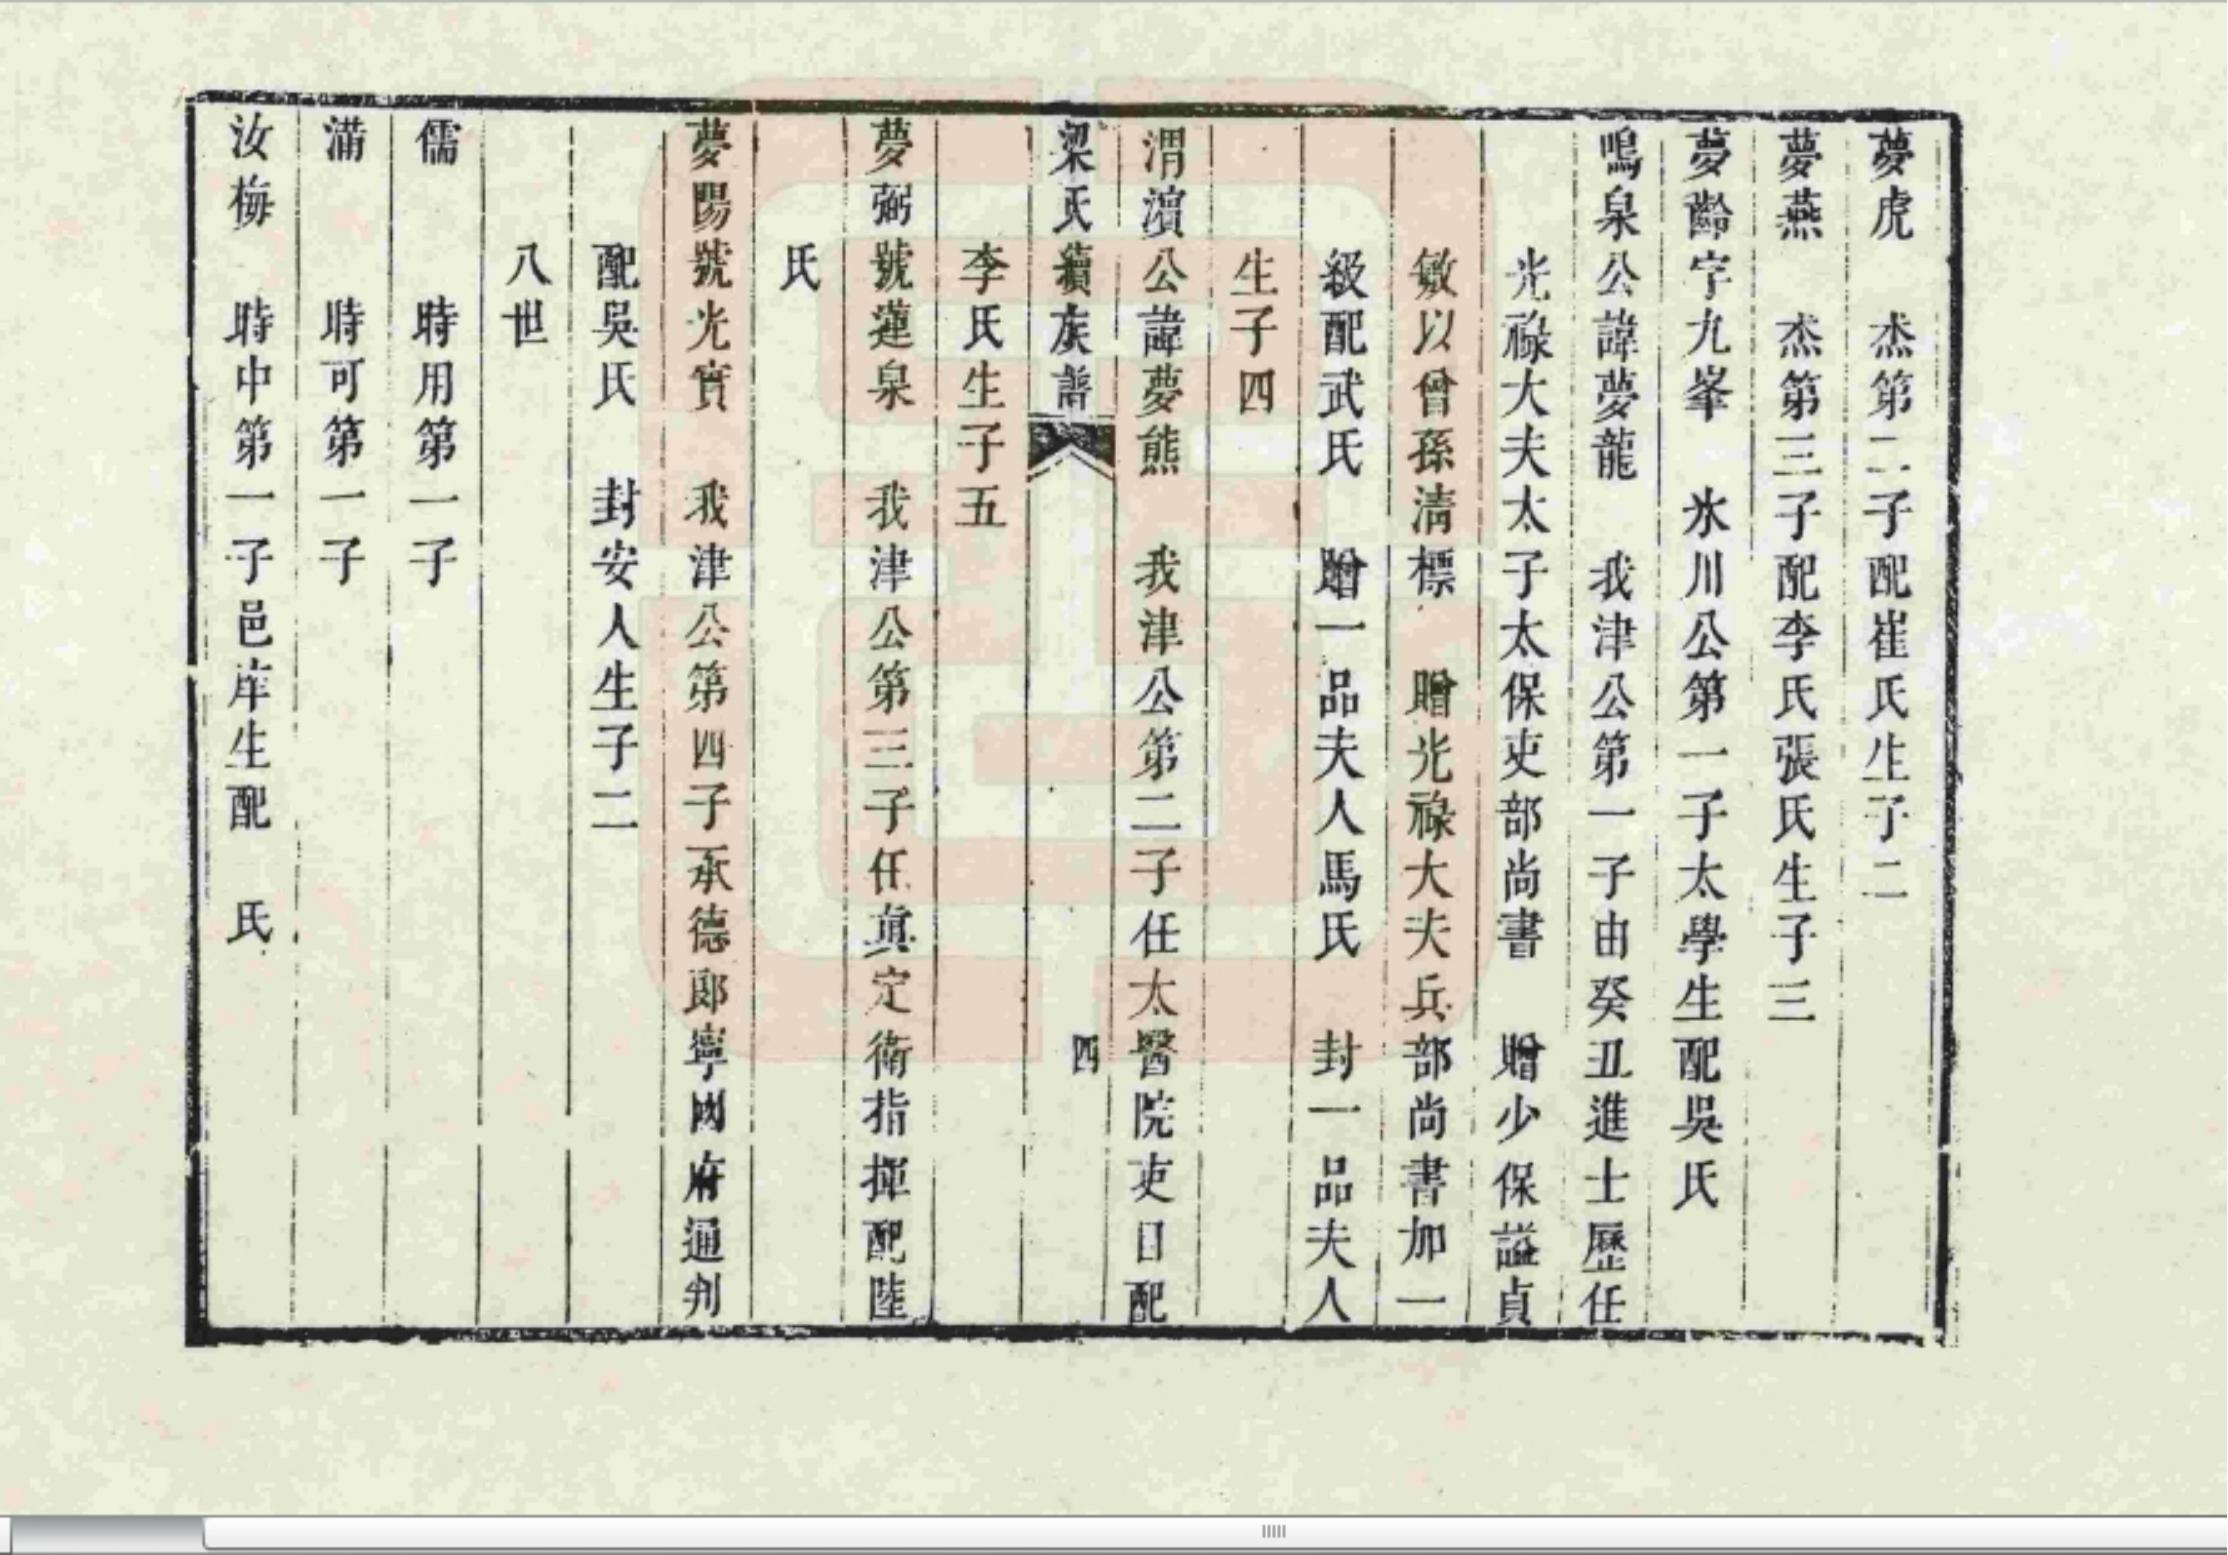 夢虎　杰第二子配崔氏生子二
夢燕　杰第三子配李氏張氏生子三
夢齡字九峯　氷川公第一子太學生配吳氏
鳴泉公諱夢龍　我津公第一子由癸丑進士歷任
光祿大夫太子太保吏部尚書　贈少保謚貞
敏以曾孫清標　贈光祿大夫兵部尚書加一
級配武氏　贈一品夫人馬氏　封一品夫人
生子四
渭濱公諱夢熊　我津公第二子任太醫院吏目配
梁氏續族譜　四
李氏生子五
夢弼號蓮泉　我津公第三子任真定衛指揮配陸
氏
夢陽號光實　我津公第四子承德郎寧國府通判
配吳氏　封安人生子二
八世
儒　時用第一子
滿　時可第一子
汝梅　時中第一子邑庠生配　氏